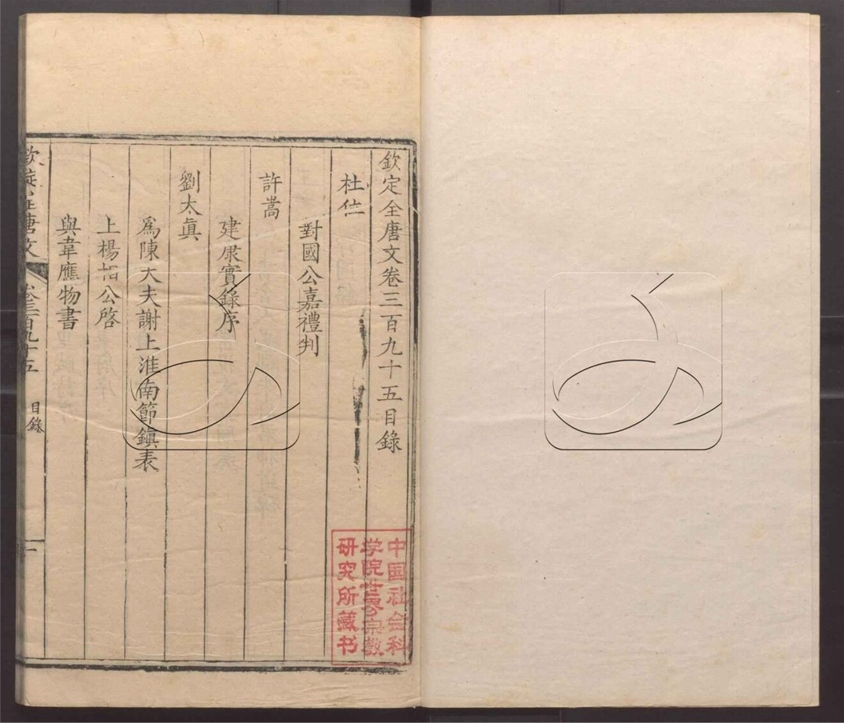 欽定全唐文卷三百九十五目錄
杜位
對國公嘉禮判
許嵩
建康實錄序
劉太真
為陳大夫謝上淮南節鎮表
上楊相公啓
與韋應物書
欽定全唐文
卷三百九十五
目錄
一
中国社会科
学院世界宗教
研究所藏书